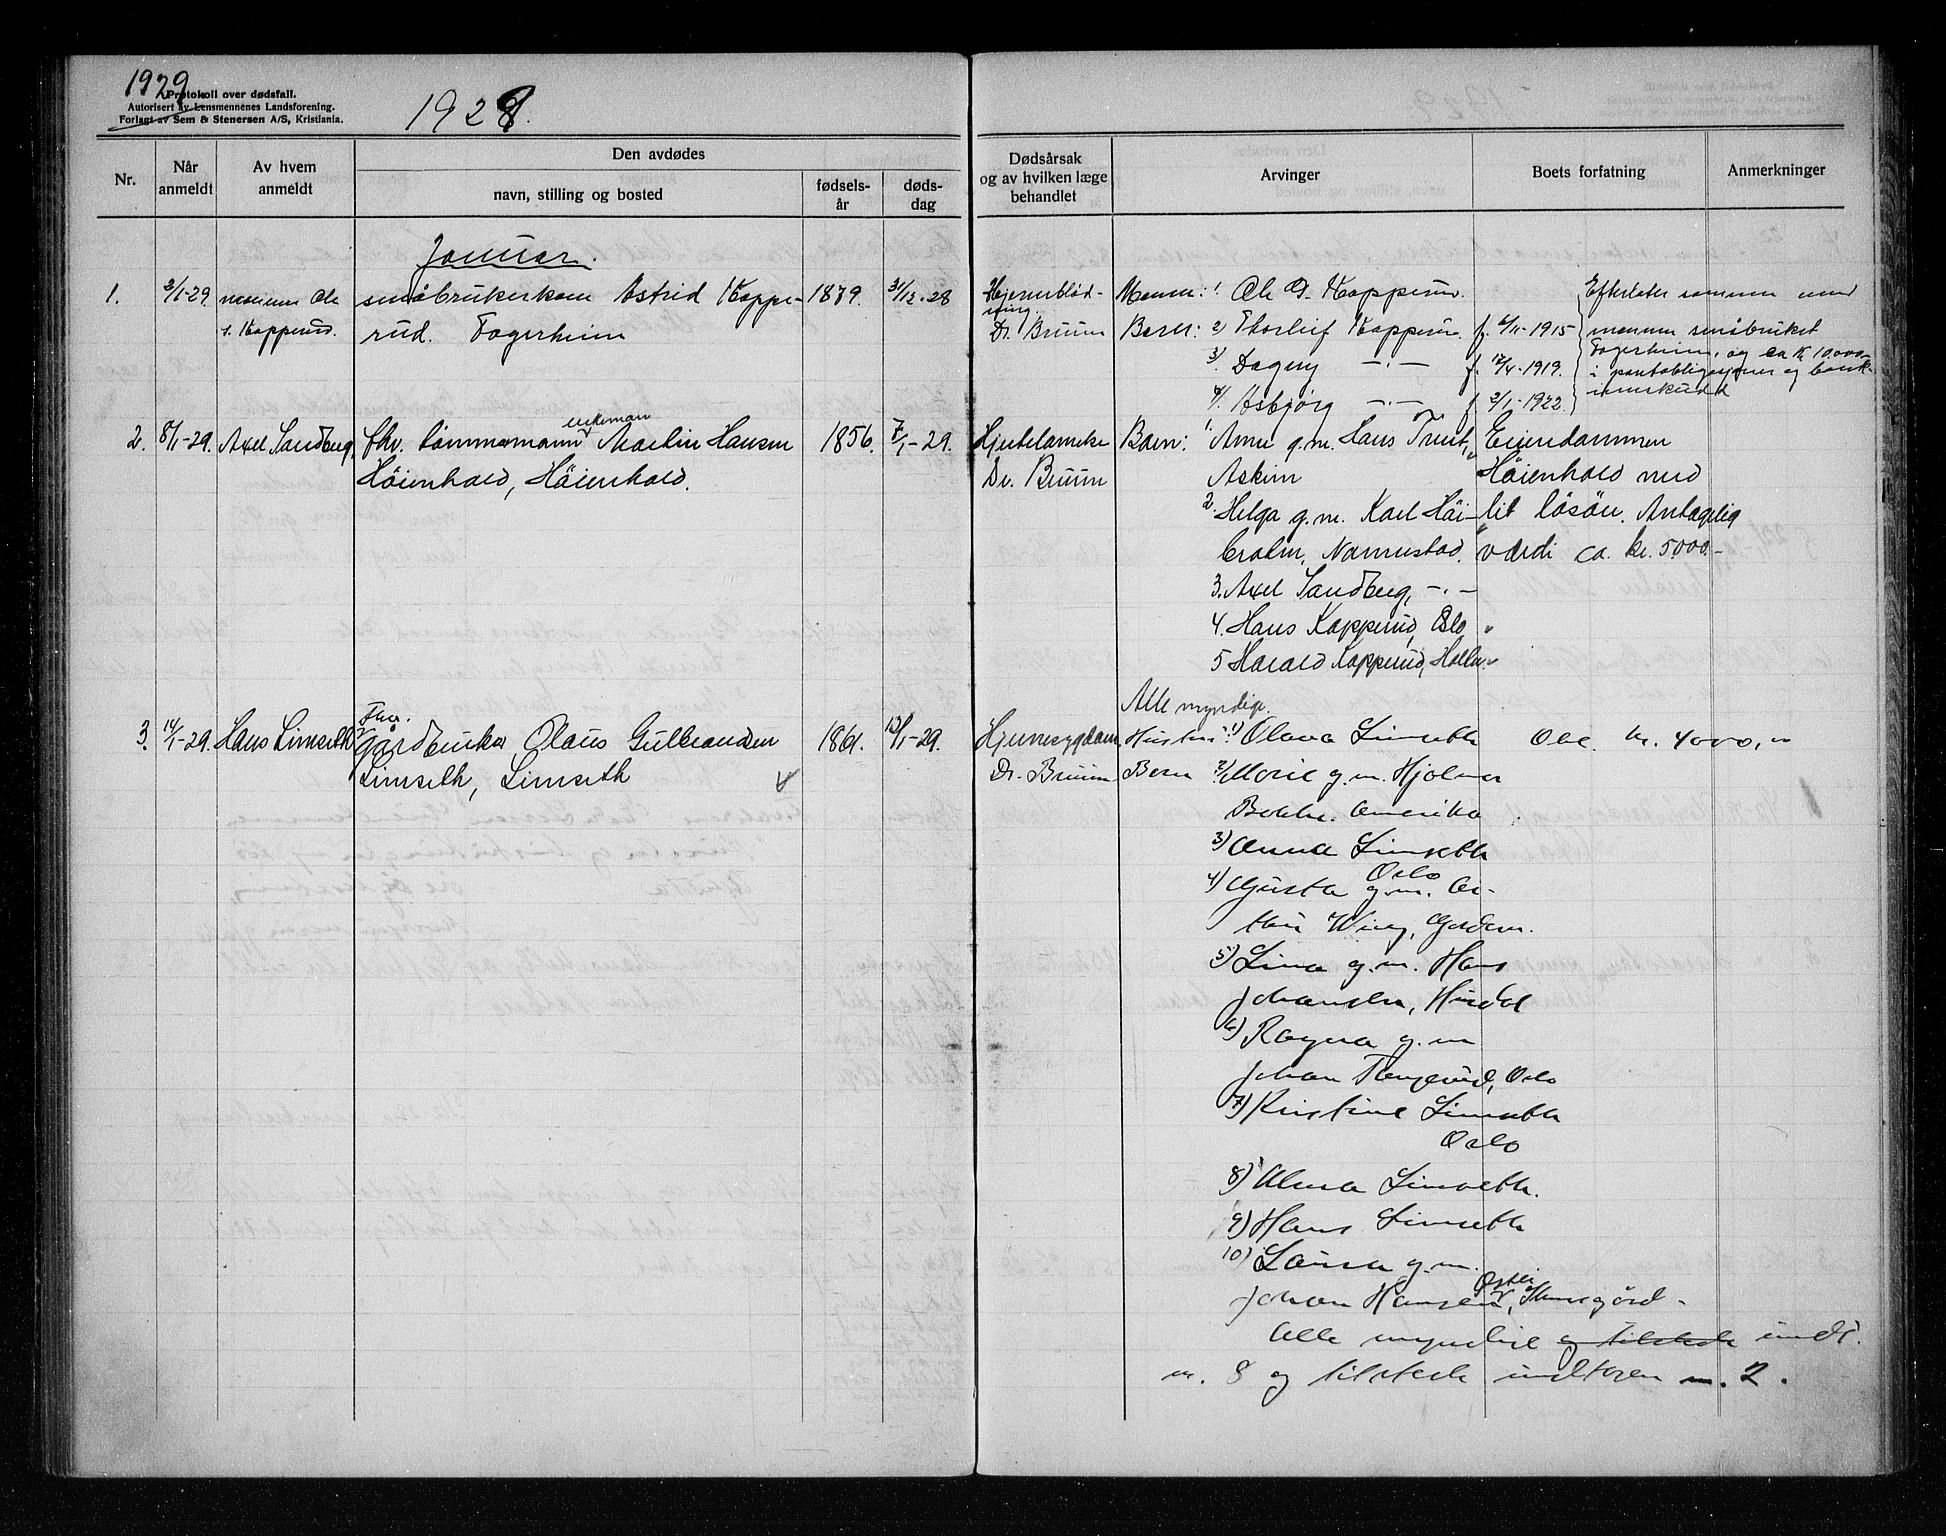 1929
Protokoll over dødsfall.
Autorisert av Lensmennenes Landsforening.
Forlagt av Sem & Stenersen A/S, Kristiania.
1929.
Nr.
Når anmeldt
Av hvem anmeldt
Den avdødes
navn, stilling og bosted
fødsels-år
døds-dag
Dødsårsak og av hvilken læge behandlet
Arvinger
Boets forfatning
Anmerkninger
Januar.
1. 2/1-29. mannen Ole
D. Kapperud.
småbrukerkone Astrid Kappe-
rud. Fagerheim
1879. 31/12-28
Hjerneblød-
ning.
Dr. Bruum
Mann: 1. Ole D. Kapperud.
Barn: 2) Thorleif Kapperud f. 6/11-1915
3) Dagny -"- f. 17/4-1919.
4) Asbjørg -"- f. 2/1-1922.
Efterlater sammen med
mannen småbruket
Fagerheim, og ca kr 10.000-
i pantobligasjoner og bank-
innskudd
2. 8/1-29. Axel Sandberg,
fhv. tømmermann enkemann Martin Hansen
Höienhald, Höienhald.
1856. 7/1-29.
Hjertelammelse
Dr. Bruum
Barn: 1. Anne g.m. Hans
Askim
2. Helga g.m. Karl Höi-
holm, Nannestad.
3. Axel Sandberg, -"-
4. Hans Kapperud, Oslo
5 Harald Kapperud, Holter
Alle myndige.
Eiendommen
Höienhald med
litt løsøre. Antagelig
værdi ca. kr. 5000.-
3. 14/1-29. Hans Limseth
Fhv.
gårdbruker Olaus Gulbrandsen
Limseth, Limseth
1861. 13/1-29.
Hjernesygdom
Dr. Bruum
Hustru: 1) Olava Limseth
Barn 2) Marie g.m. Hjalmar
Bakke. Amerika
3) Anna Limseth
Oslo
4) Gusta g.m. Ar-
thur Wing,
5) Lina g.m. Hans
Johansen, Hurdal
6) Ragna g.m
Johan Tangerud, Oslo
7) Kristine Limseth
Oslo
8) Alma Limseth.
9) Hans Limseth
10) Laura g.m.
Johan Hansen,
Alle myndige og tilstede undt.
nr. 8 og tilstede undtagen nr. 2.
kr. 4000,-